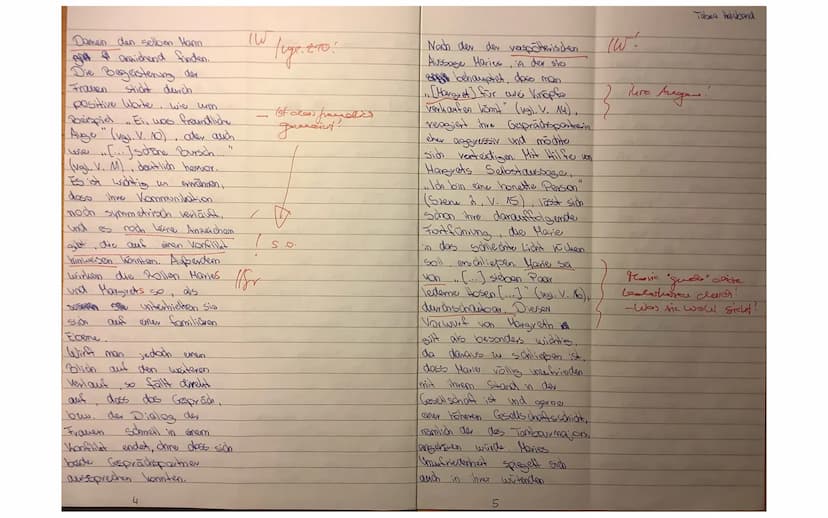 Damen den selben Mann
ansprechend finden.
Die Begeisterung der
Frauen sticht durch
positive Worte, wie zum
Beispiel "Ei, was freundliche
Auge" (vgl. V. 10), aber auch
wie "[...] schöne Bursch"
(vgl. V. 11), deutlich hervor.
Es ist wichtig zu erwähnen,
dass ihre Kommunikation
noch symmetrisch verläuft,
und es noch keine Anzeichen
gibt, die auf einen Konflikt
hinweisen könnten. Außerdem
wirken die Rollen Maries
und Margrets so, als
unterhielten sie
sich auf einer familiären
Ebene.
Wirft man jedoch einen
Blick auf den weiteren
Verlauf, so fällt direkt
auf, dass das Gespräch,
bzw. der Dialog der
Frauen schnell in einem
Konflikt endet, ohne dass sich
beide Gesprächspartner
aussprechen konnten.
4
IW
/vgl. Z. 10!
! s.o.
Nach der
Aussage Maries, in der sie
behauptet, dass man
"[Margret] für zwei Knöpfe
verkaufen könnt" (vgl. V. 14),
reagiert ihre Gesprächspartnerin
eher aggressiv und möchte
sich verteidigen. Mit Hilfe von
Margrets Selbstaussage,
"Ich bin eine honette Person"
(Szene 2, V. 15), lässt sich
schon ihre darauffolgende
Fortführung, die Marie
in das schlechte Licht rücken
soll, erschließen. Marie sa
von "[...] sieben Paar
lederne Hosen [...]" (vgl. V. 16),
durchschaubar. Dieser
Vorwurf von Margreth
gilt als besonders wichtig,
da daraus zu schließen ist,
dass Marie völlig unzufrieden
mit ihrem Stand in der
Gesellschaft ist und gerne
einer höheren Gesellschaftsschicht,
nämlich der des Tambourmajors,
angehören würde. Maries
Unzufriedenheit spiegelt sich
auch in ihrer wütenden
5
IW!
ihre Augen!
- Was sie wohl sieht!